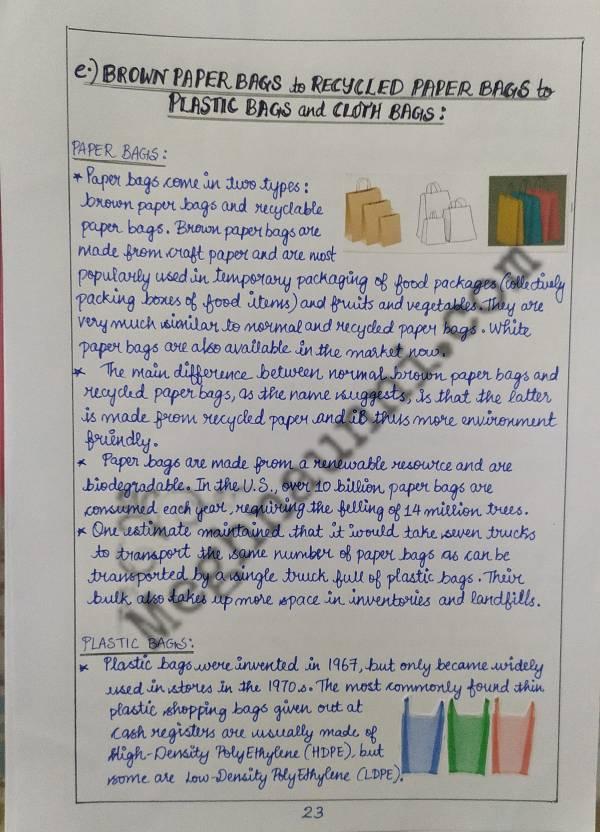 e.) BROWN PAPER BAGS to RECYCLED PAPER BAGS to
PLASTIC BAGS and CLOTH BAGS:
PAPER BAGS:
* Paper bags come in two types:
brown paper bags and recyclable
paper bags. Brown paper bags are
made from craft paper and are most
popularly used in temporary packaging of food packages (collectively
packing boxes of food items) and fruits and vegetables. They are
very much similar to normal and recycled paper bags. White
paper bags are also available in the market now.
* The main difference between normal brown paper bags and
recycled paper bags, as the name suggests, is that the latter
is made from recycled paper and is thus more environment
friendly.
* Paper bags are made from a renewable resource and are
biodegradable. In the U.S., over 10 billion paper bags are
consumed each year, requiring the felling of 14 million trees.
* One estimate maintained that it would take seven trucks
to transport the same number of paper bags as can be
transported by a single truck full of plastic bags. Their
bulk also takes up more space in inventories and landfills.
PLASTIC BAGS:
* Plastic bags were invented in 1967, but only became widely
used in stores in the 1970s. The most commonly found thin
plastic shopping bags given out at
cash registers are usually made of
High-Density PolyEthylene (HDPE), but
some are Low-Density PolyEthylene (LDPE).
23